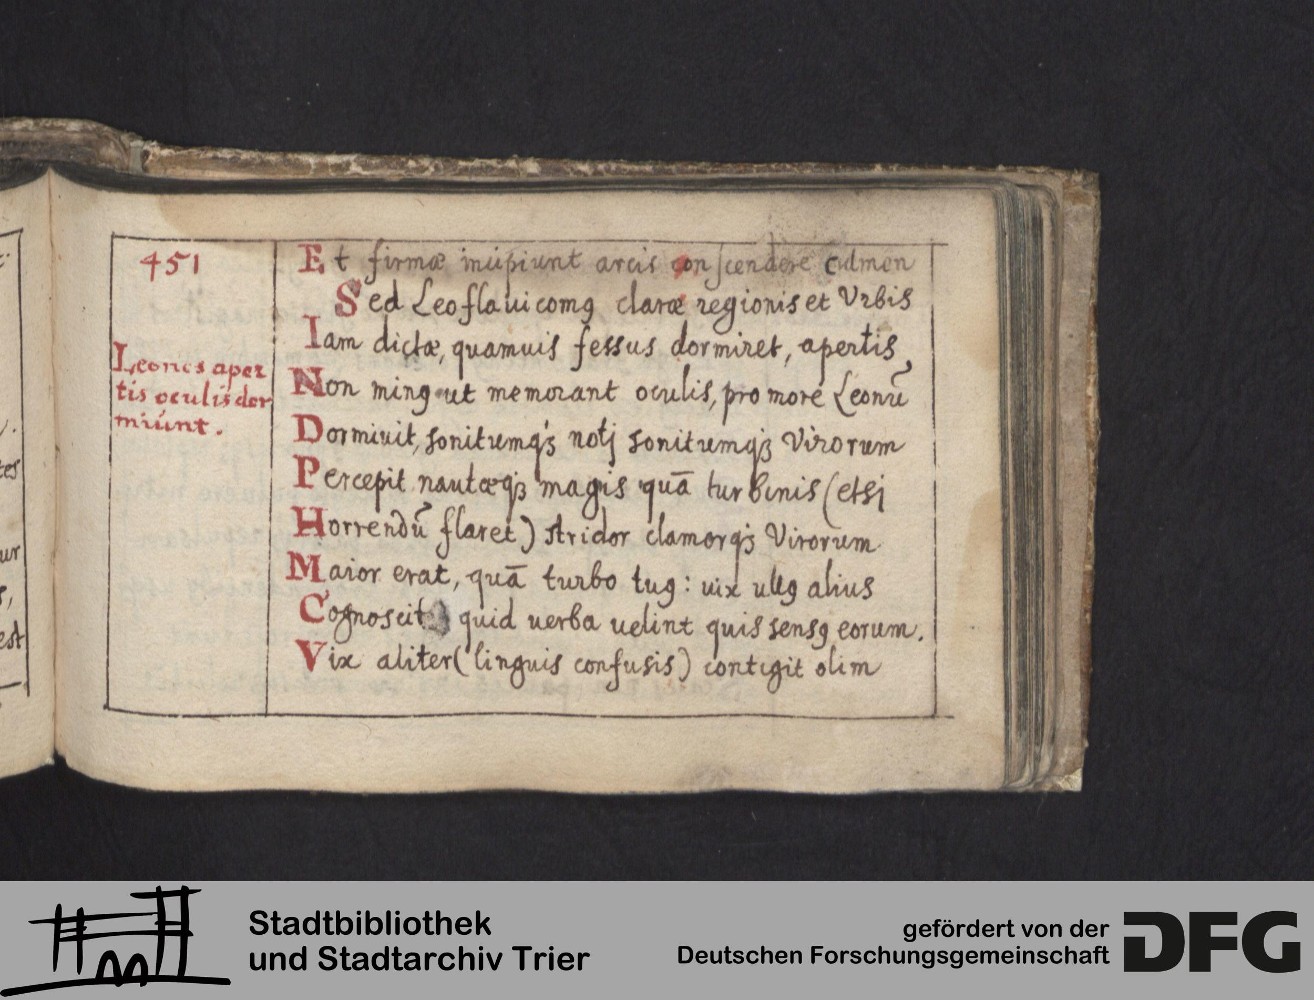 451
Leones aper
tis oculis dor
miunt.
Et firmæ incipiunt arcis conscendere culmen
Sed Leo flauicomꝰ claræ regionis et Vrbis
Iam dictæ, quamuis fessus dormiret, apertis
Non minꝰ ut memorant oculis, pro more Leonū
Dormiuit, sonitumqꝫ notj sonitumqꝫ Virorum
Percepit nautæqꝫ magis quā turbinis (etsj
Horrendū flaret) stridor clamorqꝫ Virorum
Maior erat, quā turbo tuꝰ: uix ullꝰ alius
Cognoscit quid uerba uelint quis sensꝰ eorum.
Vix aliter (linguis confusis) contigit olim
ur
est
Stadtbibliothek
und Stadtarchiv Trier
gefördert von der
Deutschen Forschungsgemeinschaft
DFG